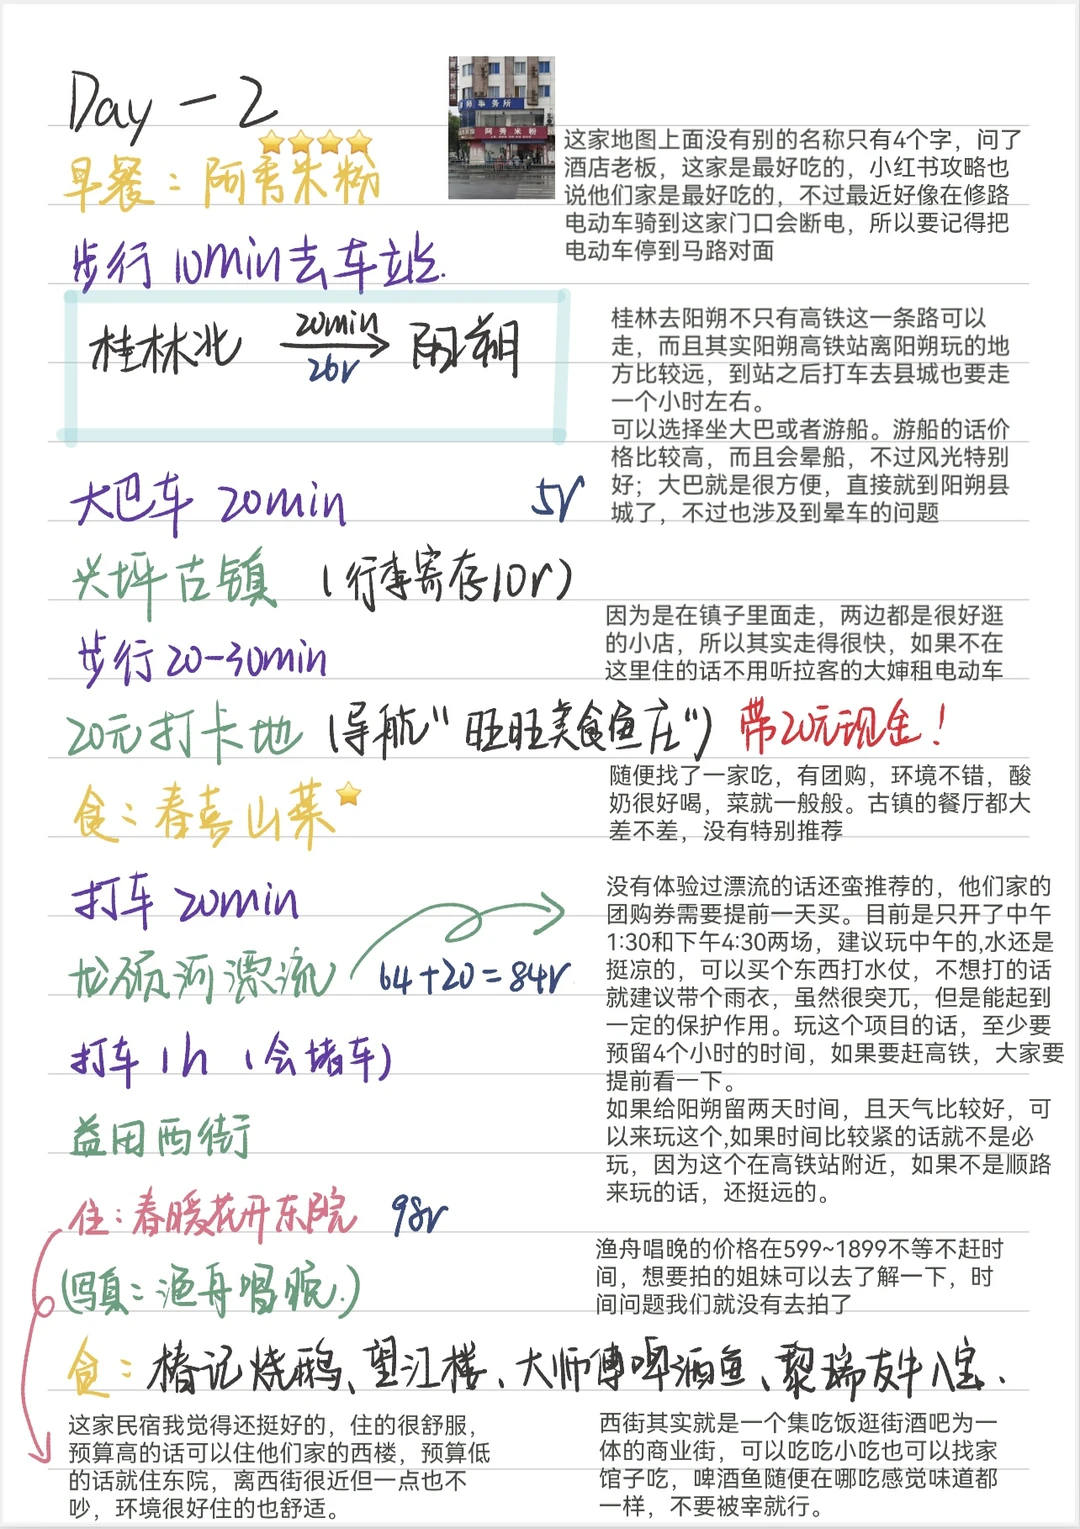 Day - 2
早餐：阿秀米粉
师事务所
阿秀米粉
这家地图上面没有别的名称只有4个字，问了
酒店老板，这家是最好吃的，小红书攻略也
说他们家是最好吃的，不过最近好像在修路
电动车骑到这家门口会断电，所以要记得把
电动车停到马路对面
步行10min去车站.
桂林北 20min 26r 阳朔
桂林去阳朔不只有高铁这一条路可以
走，而且其实阳朔高铁站离阳朔玩的地
方比较远，到站之后打车去县城也要走
一个小时左右。
可以选择坐大巴或者游船。游船的话价
格比较高，而且会晕船，不过风光特别
好；大巴就是很方便，直接就到阳朔县
城了，不过也涉及到晕车的问题
大巴车 20min 5r
兴坪古镇 (行李寄存10r)
步行20-30min
因为是在镇子里面走，两边都是很好逛
的小店，所以其实走得很快，如果不在
这里住的话不用听拉客的大婶租电动车
20元打卡地 (导航“旺旺美食鱼庄”) 带20元现金！
食：春喜山菜
随便找了一家吃，有团购，环境不错，酸
奶很好喝，菜就一般般。古镇的餐厅都大
差不差，没有特别推荐
打车 20min
龙颈河漂流 64+20=84r
没有体验过漂流的话还蛮推荐的，他们家的
团购券需要提前一天买。目前是只开了中午
1:30和下午4:30两场，建议玩中午的,水还是
挺凉的，可以买个东西打水仗，不想打的话
就建议带个雨衣，虽然很突兀，但是能起到
一定的保护作用。玩这个项目的话，至少要
预留4个小时的时间，如果要赶高铁，大家要
提前看一下。
如果给阳朔留两天时间，且天气比较好，可
以来玩这个,如果时间比较紧的话就不是必
玩，因为这个在高铁站附近，如果不是顺路
来玩的话，还挺远的。
打车 1h (会堵车)
益田西街
住：春暖花开东院 98r
(写真：渔舟唱晚.)
渔舟唱晚的价格在599~1899不等不赶时
间，想要拍的姐妹可以去了解一下，时
间问题我们就没有去拍了
食：椿记烧鹅、望江楼、大师傅啤酒鱼、黎瑞友牛八宝.
这家民宿我觉得还挺好的，住的很舒服，
预算高的话可以住他们家的西楼，预算低
的话就住东院，离西街很近但一点也不
吵，环境很好住的也舒适。
西街其实就是一个集吃饭逛街酒吧为一
体的商业街，可以吃吃小吃也可以找家
馆子吃，啤酒鱼随便在哪吃感觉味道都
一样，不要被宰就行。